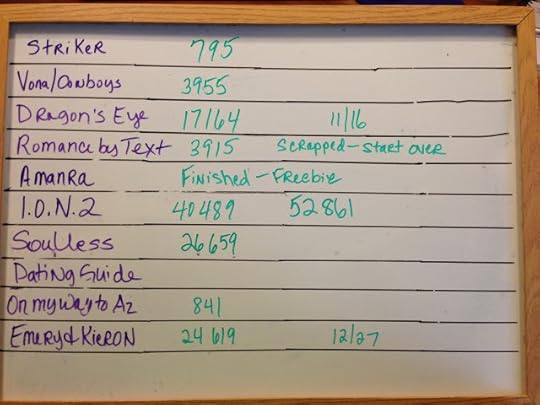 Striker 795
Vona/Cowboys 3955
Dragon's Eye 17164 11/16
Romance by Text 3915 Scrapped - Start over
AmanRa Finished - Freebie
I.O.N.2 40489 52861
Soulless 26659
Dating Guide
On my way to Az 841
Emery & Kieron 24619 12/27